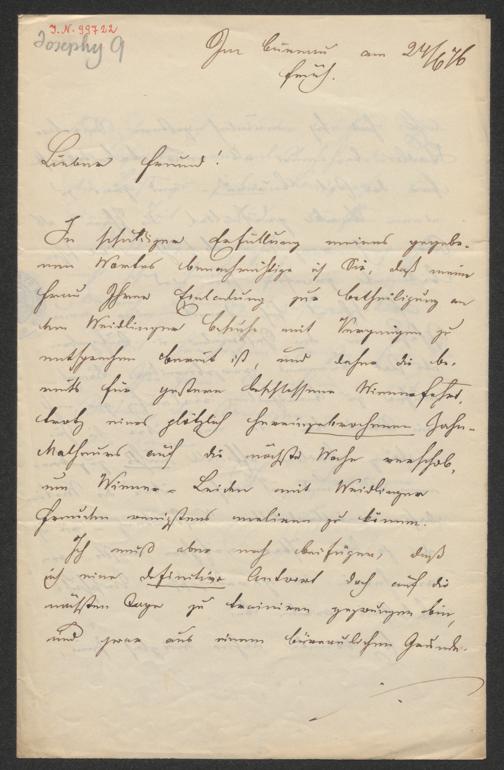 I.N. 99722
Josephy 9
Im Bureau am 24/6 76
früh.
Lieber Freund!
In schuldiger Erfüllung meines gegebe-
nen Wortes benachrichtige ich Sie, daß meine
Frau Ihrer Einladung zur Betheiligung an
dem Weidlinger Besuche mit Vergnügen zu
entsprechen bereit ist, und daher die be-
reits für gestern beschlossene Wienerfahrt
trotz eines plötzlich hereingebrochenen Zahn-
Malheurs auf die nächste Woche verschob,
um Wiener-Leiden mit Weidlinger
Freuden wenigstens meliren zu können.
Ich muß aber noch beifügen, daß
ich eine definitive Antwort doch auf die
nächsten Tage zu trainiren gezwungen bin,
und zwar aus einem bureaulichen Grunde.